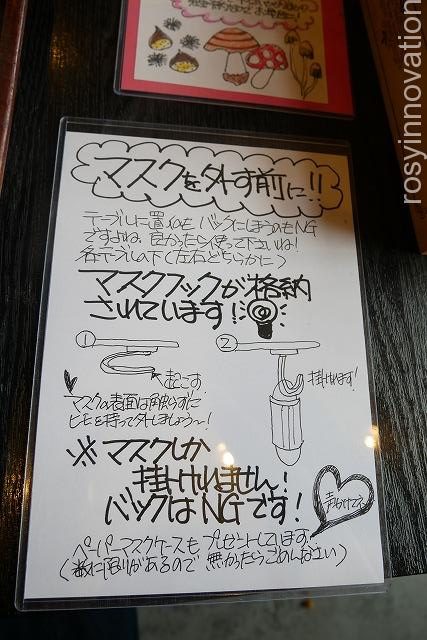 マスクを外す前に!!
テーブルに置くのも バックにしまうのもNG
ですよね。良かったら使って下さいね!
各テーブルの下(左右どちらかに)
マスクフックが格納
されています!
① ②
起こす
掛けれます!
マスクの表面は触らずに
ヒモを持って外しましょう〜!
※マスクしか
掛けれません!
バックはNGです!
声かけてネ
ペーパーマスクケースもプレゼントしています。
(数に限りがあるので 無かったらごめんなさい)
rosyinnovation